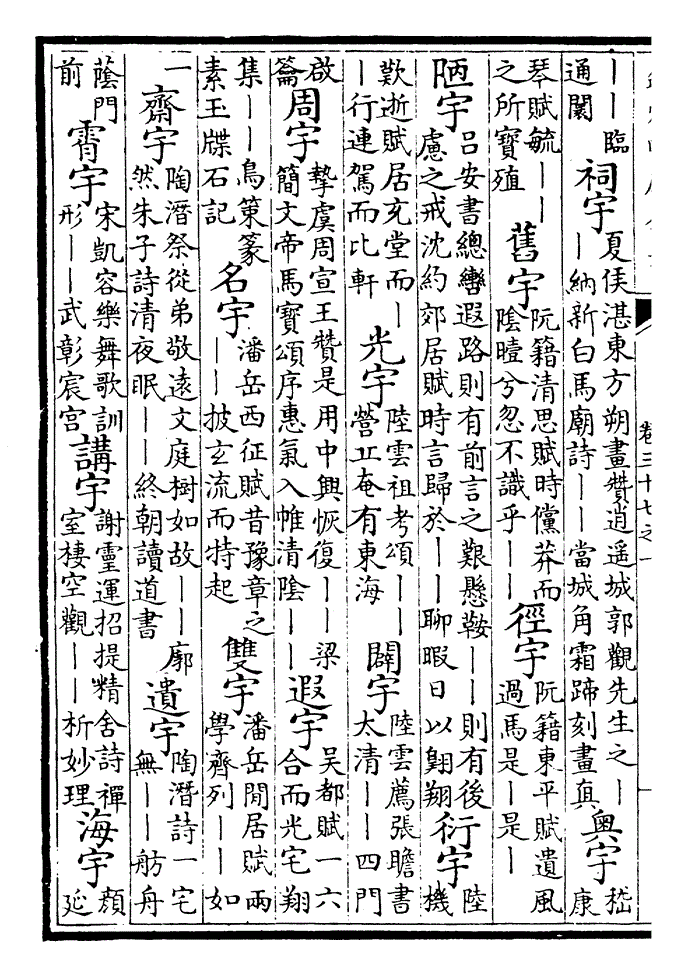 ——臨通闤祠宇夏侯湛東方朔畫贊逍遙城郭觀先生之——納新白馬廟詩——當城角霜蹄刻畫真奧宇嵇康
琴賦毓——之所寶殖舊宇阮籍清思賦時儻莽而陰曀兮忽不識乎——徑宇阮籍東平賦遺風過馬是—是—
陋宇呂安書總轡遐路則有前言之艱懸鞍——則有後慮之戒沈約郊居賦時言歸於——聊暇日以翺翔衍宇陸機
歎逝賦居充堂而——行連駕而比軒光宇陸雲祖考頌——營丘奄有東海闢宇陸雲薦張瞻書太清——四門
啟籥周宇摯虞周宣王贊是用中興恢復——梁簡文帝馬寶頌序惠氣入帷清陰——遐宇吳都賦一六合而光宅翔
集——鳥策篆素玉牒石記名宇潘岳西征賦昔豫章之——披玄流而特起雙宇潘岳閒居賦兩學齊列——如
一齋宇陶潛祭從弟敬遠文庭樹如故——廓然朱子詩清夜眠——終朝讀道書遺宇陶潛詩一宅無——舫舟
蔭門前霄宇宋凱容樂舞歌訓形——武彰宸宮講宇謝靈運招提精舍詩禪室棲空觀——析妙理海宇顏延
卷三十七之一